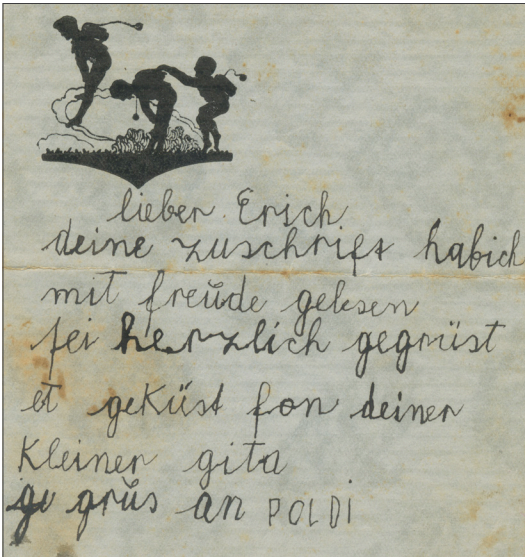 lieber Erich
deine zuschrift habich
mit freŭde gelesen
sei herzlich gegrüst
et geküst fon deiner
kleiner gita
grŭs an POLDI